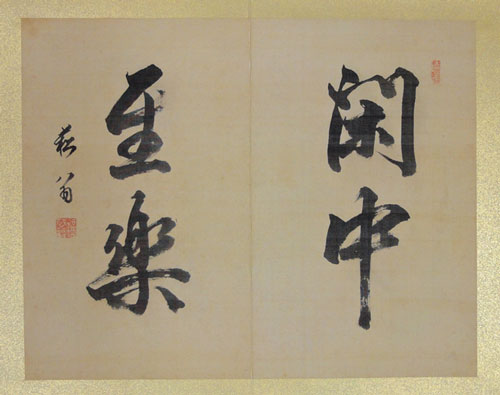 閑中
至樂